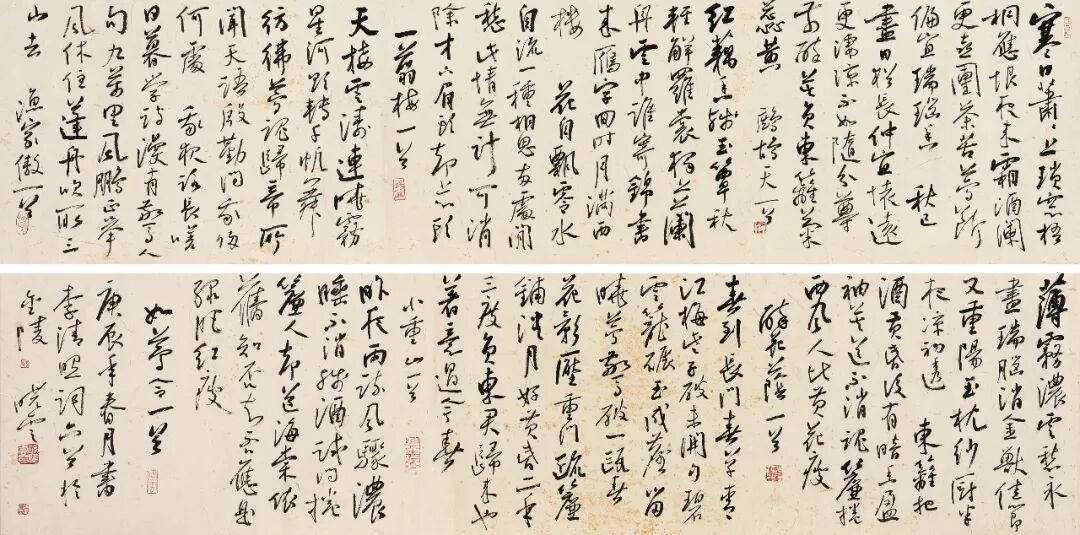 寒日蕭蕭上瑣窗梧
桐應恨夜來霜酒闌
更喜團茶苦夢斷
偏宜瑞腦香 秋已
盡日猶長仲宣懷遠
更淒涼不如隨分尊
前醉莫負東籬菊
蕊黃 鷓鴣天一首
紅藕香殘玉簟秋
輕解羅裳獨上蘭
舟雲中誰寄錦書
來雁字回時月滿西
樓 花自飄零水
自流一種相思兩處閒
愁此情無計可消
除才下眉頭却上心頭
一翦梅一首
天接雲濤連曉霧
星河欲轉千帆舞
彷彿夢魂歸帝所
聞天語殷勤問我歸
何處 我報路長嗟
日暮學詩謾有驚人
句九萬里風鵬正舉
風休住蓬舟吹取三
山去 漁家傲一首
薄霧濃雲愁永
晝瑞腦消金獸佳節
又重陽玉枕紗廚半
夜涼初透 東籬把
酒黃昏後有暗香盈
袖莫道不消魂簾捲
西風人比黃花瘦
醉花陰一首
春到長門春草青
江梅些子破未開勻碧
雲籠碾玉成塵留
曉夢驚破一甌春
花影壓重門疏簾
鋪淡月好黃昏二年
三度負東君歸來也
著意過今春
小重山一首
昨夜雨疏風驟濃
睡不消殘酒試問捲
簾人却道海棠依
舊知否知否應是
綠肥紅瘦
如夢令一首
庚辰年春月書
李清照詞六首於
金陵 曉雲